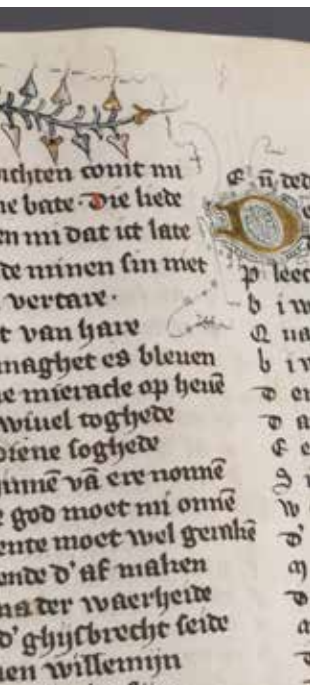 ichten comt mi
ne bate · Die liede
en mi dat ict late
de minen sin niet
vertare ·
t van hare
maghet es bleuen
ie mieracle op heuē
wiuel toghede
diene soghede
innē vā ere nonnē
e god moet mi onnē
ente moet wel gerakē
ende d'af maken
na der waerheide
d' ghijsbrecht seide
en willemijn
E n̄ ded
D
P leec
b i w
Q ua
b i